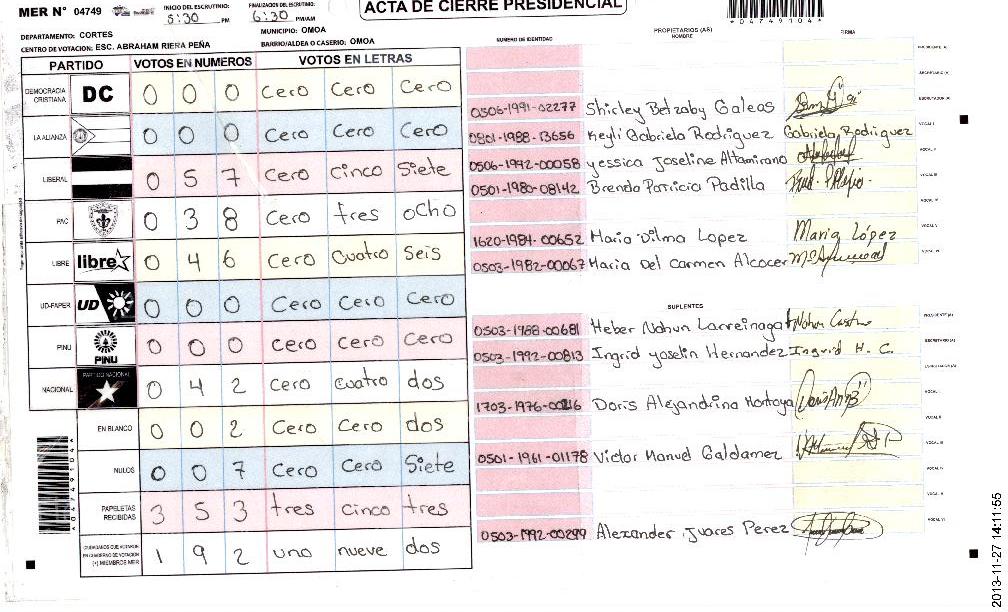 MER N° 04749
INICIO DEL ESCRUTINIO: 5:30 PM
FINALIZACION DEL ESCRUTINIO: 6:30 PM/AM
ACTA DE CIERRE PRESIDENCIAL
*04749104*
DEPARTAMENTO: CORTES
MUNICIPIO: OMOA
CENTRO DE VOTACION: ESC. ABRAHAM RIERA PEÑA
BARRIO/ALDEA O CASERIO: OMOA
PARTIDO VOTOS EN NUMEROS VOTOS EN LETRAS
DEMOCRACIA CRISTIANA DC 0 0 0 Cero Cero Cero
LA ALIANZA 0 0 0 Cero Cero Cero
LIBERAL 0 5 7 Cero Cinco Siete
PAC 0 3 8 Cero tres ocho
LIBRE libre 0 4 6 Cero Cuatro Seis
UD-FAPER UD 0 0 0 Cero Cero Cero
PINU PINU 0 0 0 Cero Cero Cero
NACIONAL PARTIDO NACIONAL 0 4 2 Cero Cuatro dos
EN BLANCO 0 0 2 Cero Cero dos
NULOS 0 0 7 Cero Cero Siete
PAPELETAS RECIBIDAS 3 5 3 tres cinco tres
CIUDADANOS QUE VOTARON EN CUADERNO DE VOTACION (+) MIEMBROS MER 1 9 2 uno nueve dos
*04749104*
PROPIETARIOS (AS)
NUMERO DE IDENTIDAD NOMBRE FIRMA
PRESIDENTE (A)
SECRETARIO (A)
0506-1991-02277 Shirley Betzaby Galeas ESCRUTADOR (A)
0801-1988-13656 Keyli Gabriela Rodriguez Gabriela Rodriguez VOCAL I
0506-1992-00058 yessica Joseline Altamirano VOCAL II
0501-1980-08142 Brenda Patricia Padilla VOCAL III
VOCAL IV
1620-1984-00652 Maria Dilma Lopez Maria López VOCAL V
0503-1982-00067 Maria Del Carmen Alcocer VOCAL VI
SUPLENTES
0503-1988-00681 Heber Nahun Larreinaga PRESIDENTE (A)
0503-1992-00813 Ingrid yoselin Hernandez Ingrid H. C. SECRETARIO (A)
ESCRUTADOR (A)
1703-1976-00216 Doris Alejandrina Montoya VOCAL I
VOCAL II
0501-1961-01178 Victor Manuel Galdamez VOCAL III
VOCAL IV
VOCAL V
0503-1992-00299 Alexander Juares Perez VOCAL VI
2013-11-27 14:11:55